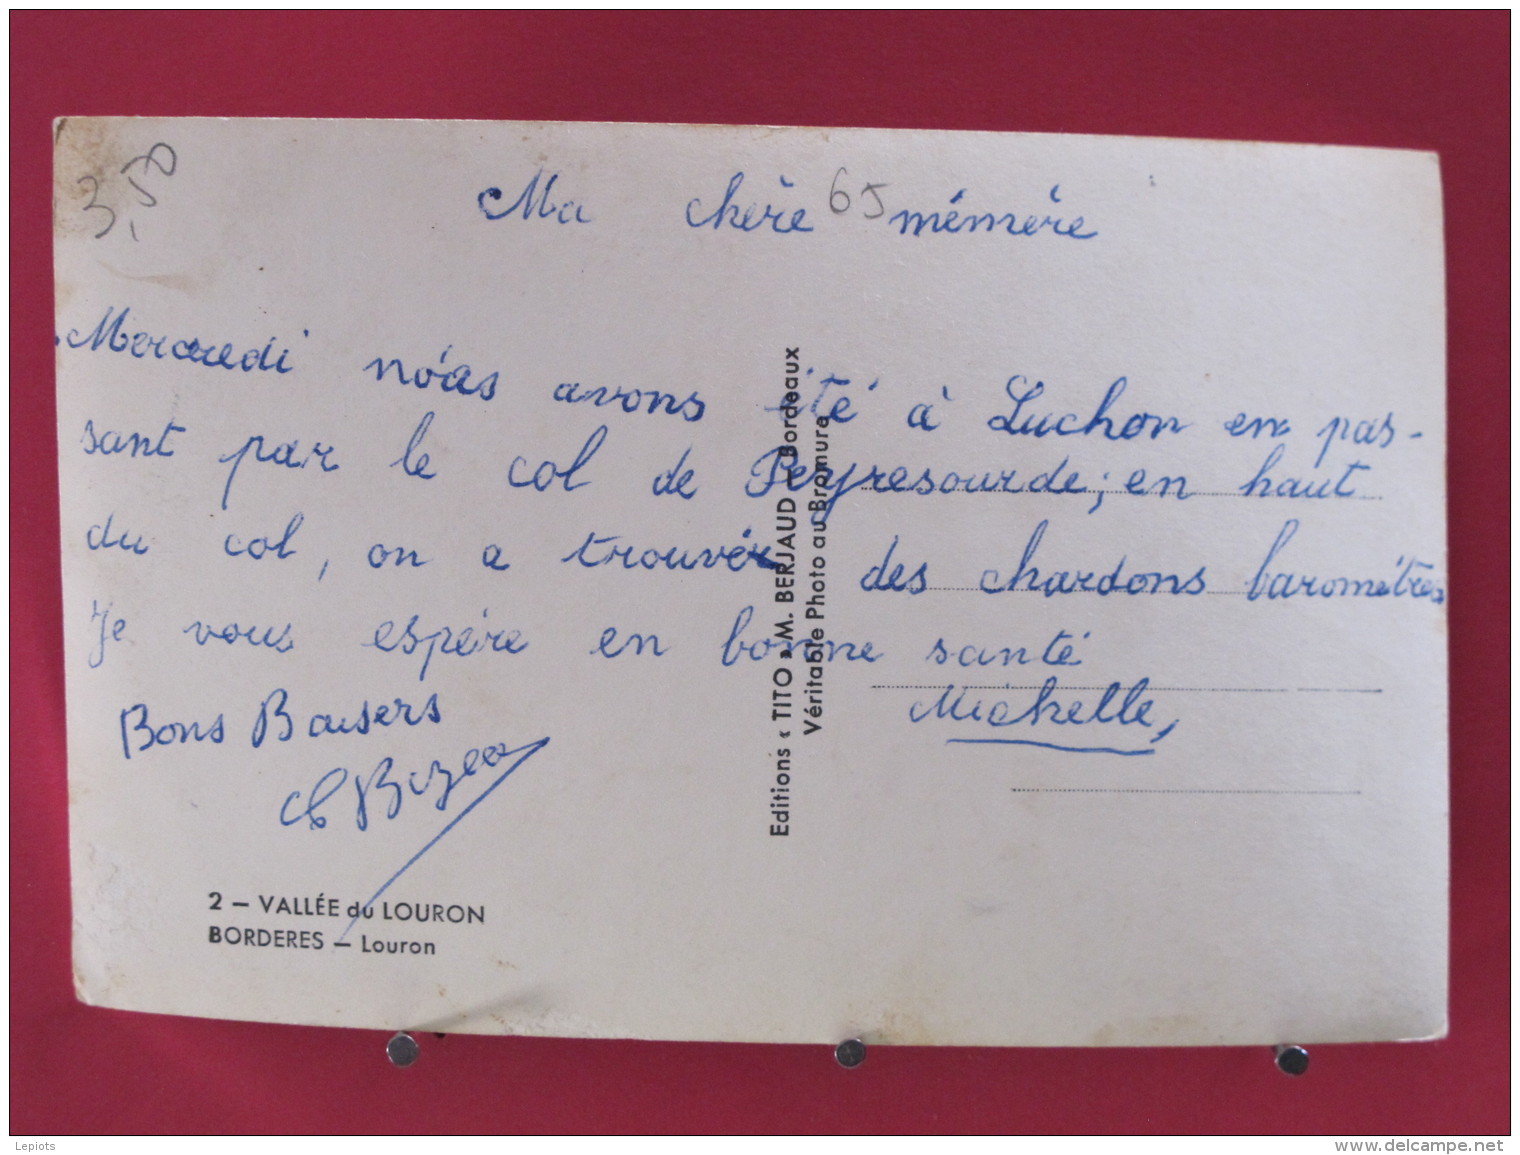 3,50
Ma chère 65 mémère
Mercredi nous avons été à Luchon en pas-
sant par le col de Peyresourde; en haut
du col, on a trouvér des chardons baromètres
Je vous espère en bonne santé
Michelle,
Bons Baisers
Editions « TITO » M. BERJAUD - Bordeaux
Véritable Photo au Bromure
2 – VALLÉE du LOURON
BORDERES – Louron
Lepiots
www.delcampe.net